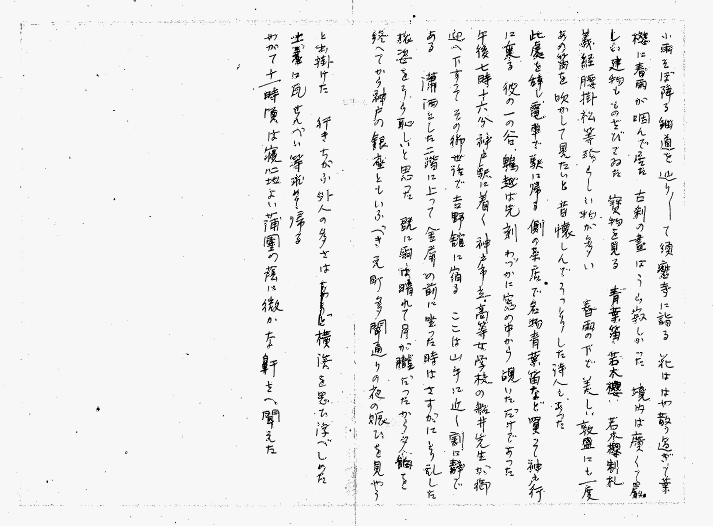 小雨そぼ降る細道を辿りして須磨寺に詣る 花ははや散り過ぎて葉
櫻に春雨が咽んで居た 古刹の晝はうら寂しかった 境内は廣くて厳
しい建物もものさびてゐた 寳物を見る 青葉笛 若木櫻 若木櫻制札
義経腰掛松等珍らしい物が多い 春雨の下で美しい敦盛にも一度
あの笛を吹かして見たいと昔懐しんでうっとりした詩人もあった
此處を辞し電車で駅に帰る 側の茶店で名物青葉笛など買って神戸行
に乗る 彼の一の谷 鵯越は先刻わづかに窓の中から覗いただけであった
午後七時十六分神戸駅に着く 神戸市立高等女学校の 井先生が御
迎へ下すってその御世話で吉野舘に宿る ここは山手に近く割に静で
ある 瀟洒とした二階に上って金屏の前に坐った時はさすがにとり乱した
旅姿をちと恥しいと思った 既に雨は晴れて月が朧だったから夕餉を
終へてから神戸の銀座ともいふべき元町 多聞通りの夜の賑ひを見やう
と出掛けた 行きちがふ外人の多さは 横浜を思ひ浮べしめた
土産に瓦せんべい等求めて帰る
やがて十一時頃は寝心地よい蒲團の蔭に微かな鼾さへ聞えた